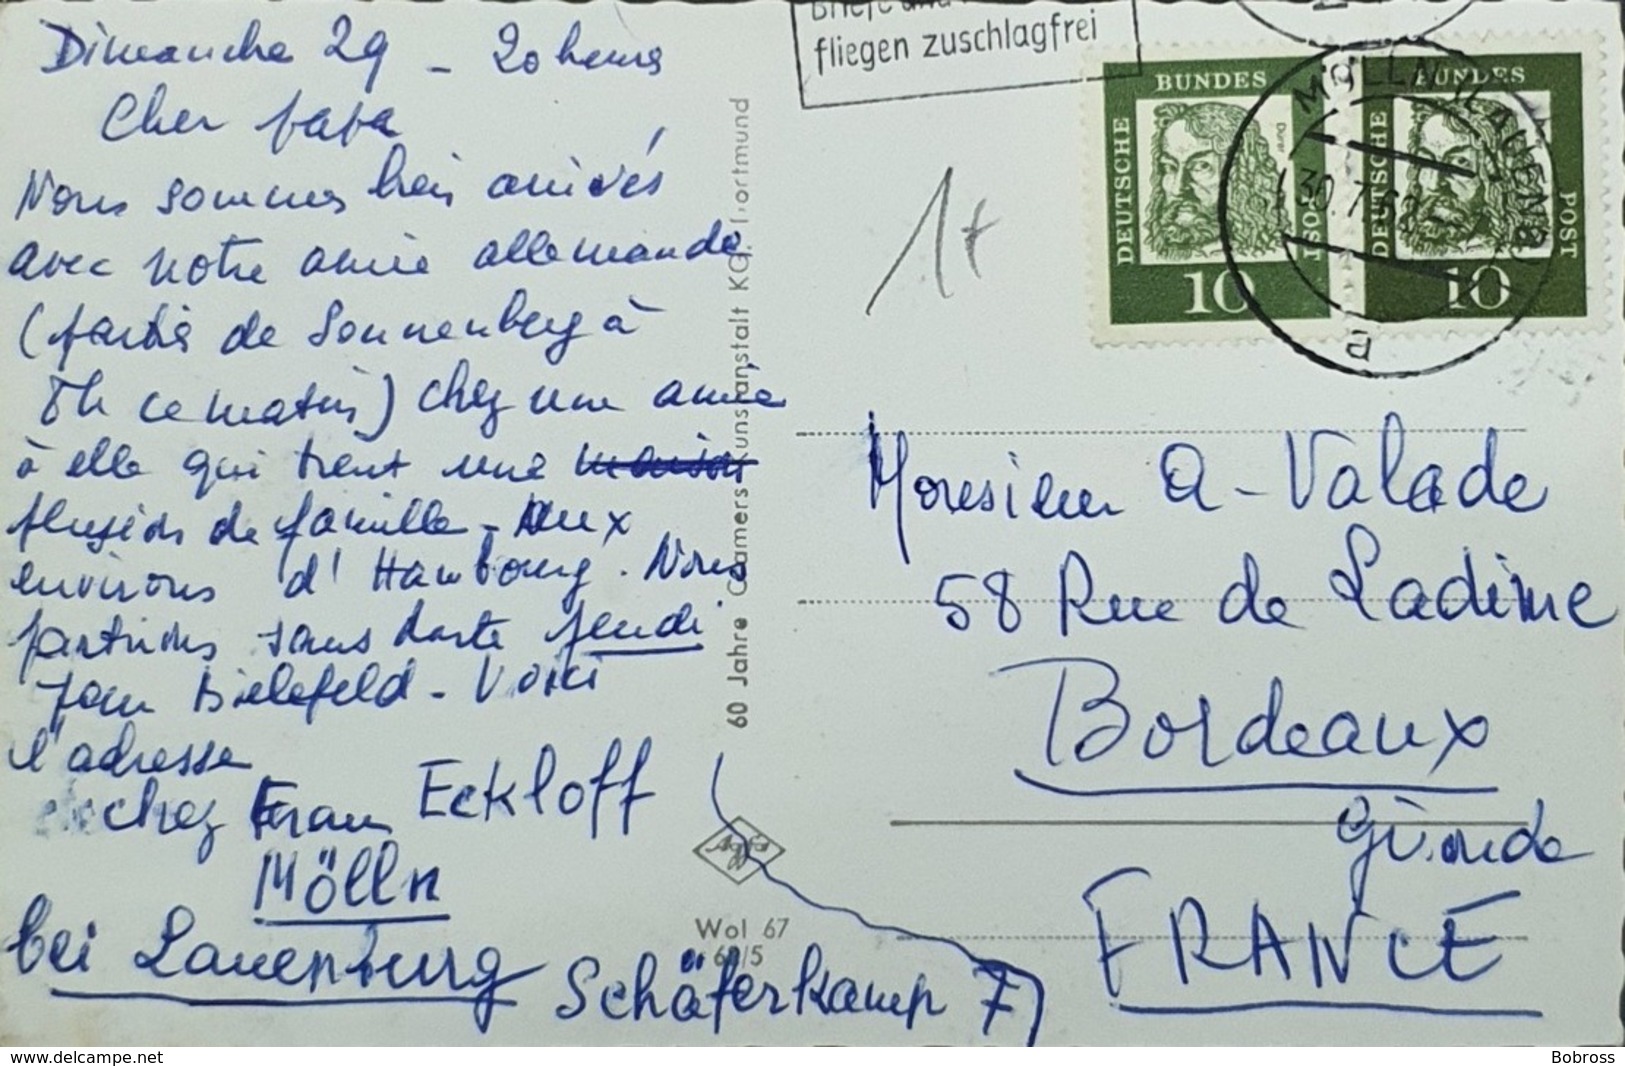 Dimanche 29 - 20 heures
Cher papa
Nous sommes bien arrivés
avec notre amie allemande
(partis de Sonnenberg à
8h ce matin) chez une amie
à elle qui tient une maison
pension de famille - Aux
environs d'Hambourg. Nous
partirons sans doute jeudi
pour Bielefeld - Voici
l'adresse
chez Frau Eckloff
Mölln
bei Lauenburg
Schäferkamp 7
60 Jahre Cramers Kunstanstalt KG. Dortmund
Agfa
Wol 67
fliegen zuschlagfrei
1+
DEUTSCHE BUNDES POST
Dürer
10
DEUTSCHE BUNDES POST
10
MÖLLN (LAUENB)
30.7.62
a
Monsieur A - Valade
58 Rue de Ladime
Bordeaux
Gironde
FRANCE
www.delcampe.net
Bobross